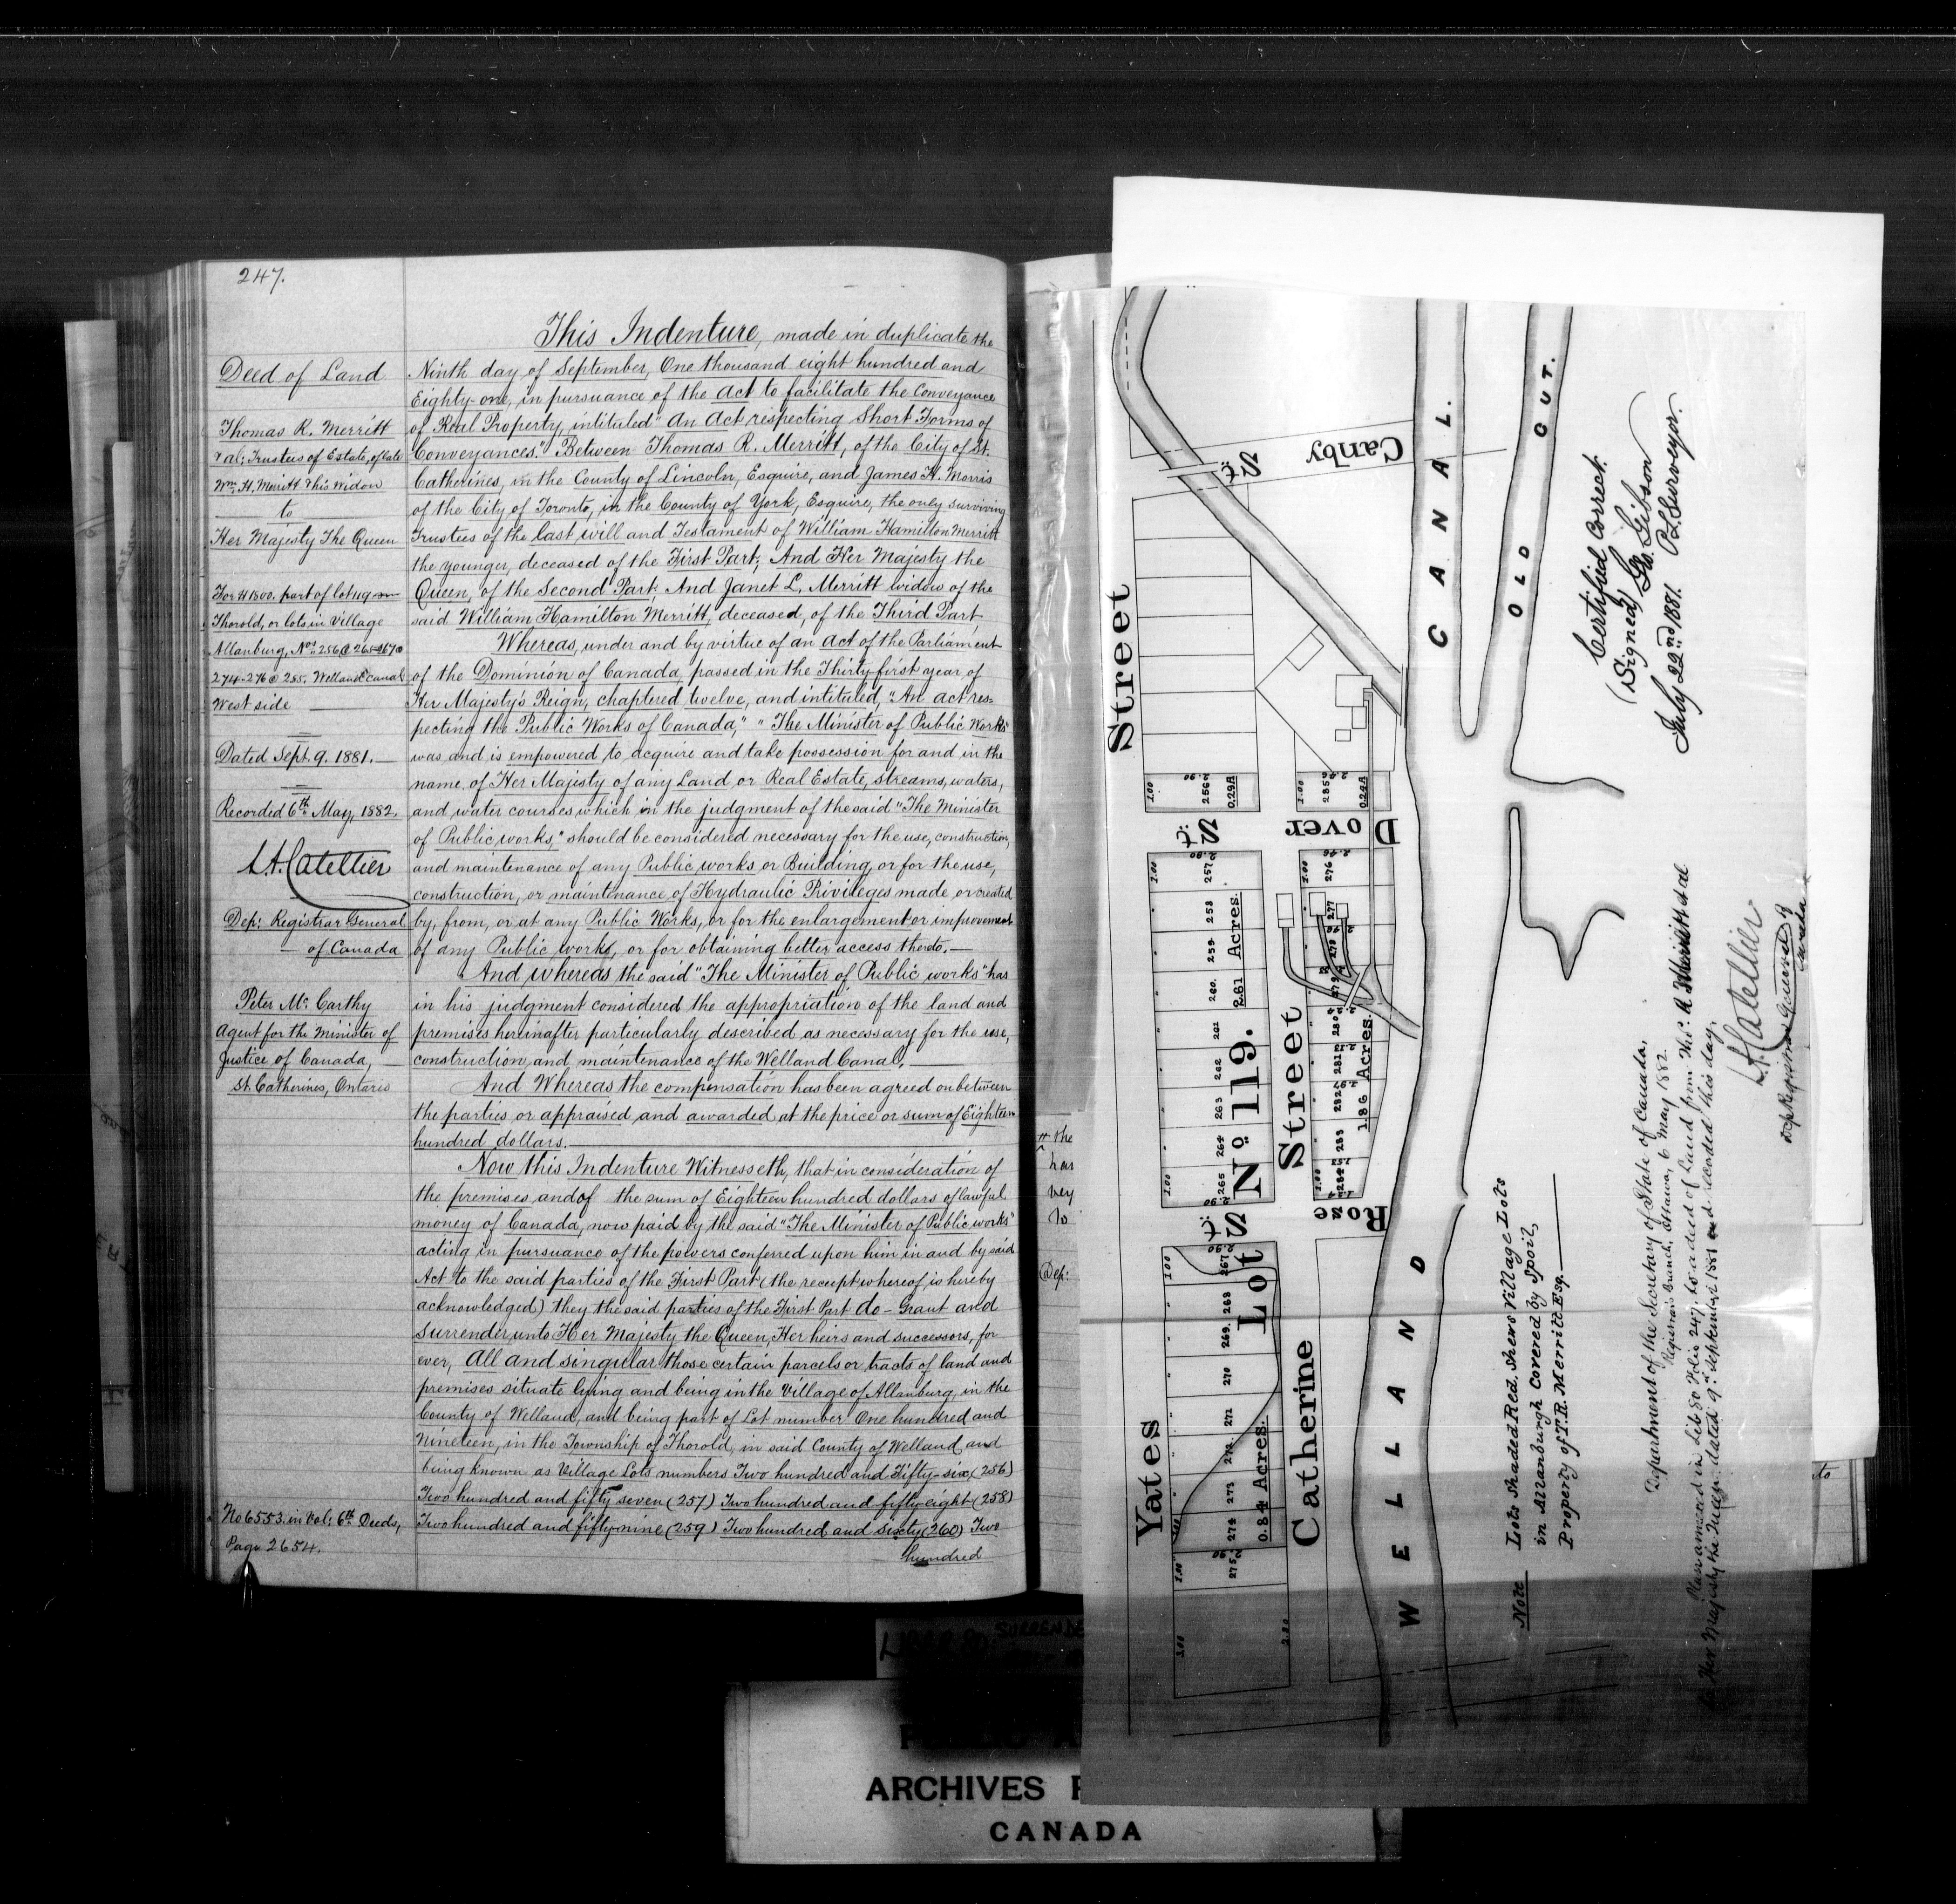 247.
Deed of Land
Thomas R. Merritt
& al; Trustees of Estate, of late
Wm. H. Merritt & his Widow
to
Her Majesty The Queen
For $1800. part of lot 119 in
Thorold, or lots in Village
Allanburg, Nos. 256 @ 265
274-276 @ 285. Welland Canal
West side
Dated Sept. 9. 1881.
Recorded 6th May, 1882.
L.A. Catellier
Dep: Registrar General
of Canada
Peter Mc Carthy
Agent for the Minister of
Justice of Canada,
St. Catherines, Ontario
No 6553. in Vol: 6th Deeds,
Page 2654.
This Indenture, made in duplicate the
Ninth day of September, One thousand eight hundred and
Eighty-one, in pursuance of the Act to facilitate the Conveyance
of Real Property, intituled "An Act respecting Short Forms of
Conveyances." Between Thomas R. Merritt, of the City of St.
Catherines, in the County of Lincoln, Esquire, and James H. Morris
of the City of Toronto, in the County of York, Esquire, the only surviving
Trustees of the last will and Testament of William Hamilton Merritt
the younger, deceased of the First Part; And Her Majesty the
Queen, of the Second Part; And Janet L. Merritt widow of the
said William Hamilton Merritt, deceased, of the Third Part,
Whereas, under and by virtue of an Act of the Parliament
of the Dominion of Canada, passed in the Thirty-first year of
Her Majesty's Reign, chaptered twelve, and intituled, "An act res-
pecting the Public Works of Canada," "The Minister of Public Works"
was and is empowered to acquire and take possession for and in the
name of Her Majesty of any Land or Real Estate, streams, waters,
and water courses which in the judgment of the said "The Minister
of Public works," should be considered necessary for the use, construction,
and maintenance of any Public works or Building, or for the use,
construction, or maintenance of Hydraulic Privileges made or created
by, from, or at any Public Works, or for the enlargement or improvement
of any Public works, or for obtaining better access thereto.
And whereas the said "The Minister of Public works" has
in his judgment considered the appropriation of the land and
premises hereinafter particularly described as necessary for the use,
construction and maintenance of the Welland Canal.
And Whereas the compensation has been agreed on between
the parties or appraised and awarded at the price or sum of Eighteen
hundred dollars.
Now this Indenture Witnesseth, that in consideration of
the premises and of the sum of Eighteen hundred dollars of lawful
money of Canada, now paid by the said "The Minister of Public works"
acting in pursuance of the powers conferred upon him in and by said
Act to the said parties of the First Part (the receipt whereof is hereby
acknowledged) they the said parties of the First Part do - Grant and
Surrender unto Her Majesty the Queen, Her heirs and successors, for
ever, All and singular those certain parcels or tracts of land and
premises situate lying and being in the Village of Allanburg, in the
County of Welland, and being part of Lot number One hundred and
Nineteen, in the Township of Thorold, in said County of Welland and
being known as Village Lots numbers Two hundred and Fifty-six (256)
Two hundred and fifty seven (257) Two hundred and fifty eight (258)
Two hundred and fifty nine (259) Two hundred and sixty (260) Two
hundred
the
has
vey
to
Dep:
Yates Street
Catherine Street
Canby St.
Dover St.
Rose St.
Lot No. 119.
WELLAND CANAL.
OLD CUT.
1.00 256 0.29A
1.00 285 0.29A
1.00 257 258 259 260. 261 262 263 264 265 1.00
2.61 Acres.
1.00 276 277 278 279 280 281 282 283 284 1.00
1.86 Acres.
1.00 267 268 269. 270 272 273 274 275
0.84 Acres.
1.00 2.00
Certified Correct.
(Signed) Geo. Gibson
July 22nd 1881. P.L. Surveyor.
Note Lots Shaded Red. Shews Village Lots
in Allanburgh Covered by Spoil,
Property of T.R. Merritt Esq.
Department of the Secretary of State of Canada.
Registrar's Branch, Ottawa, 6 May 1882.
Plan annexed in Lib 80 Folio 247. to a deed of Land from Thos. R Merritt et al
to Her Majesty the Queen dated 9th September 1881 and recorded this day.
L.A. Catellier
Dep Registrar General of
Canada
LIBER 80. SURRENDE
PUBLIC A
ARCHIVES P
CANADA